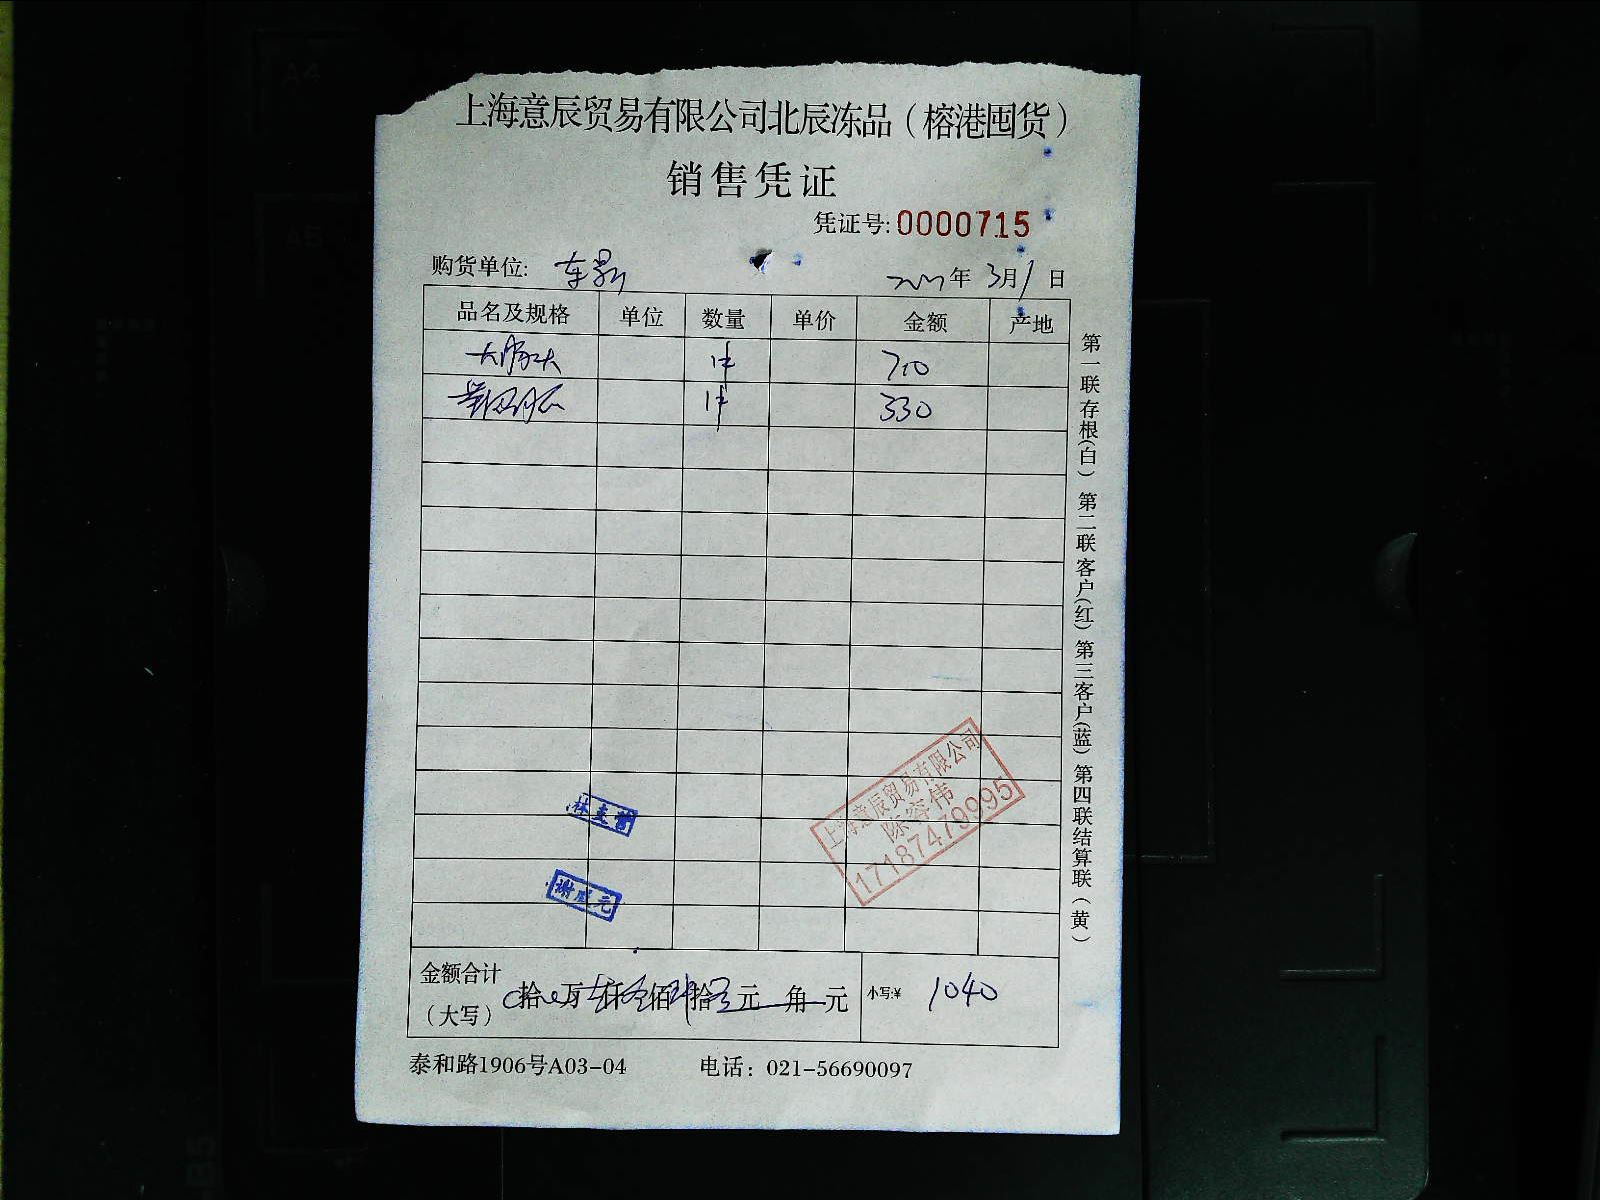 上海意辰贸易有限公司北辰冻品（榕港囤货）
销售凭证
凭证号:0000715
购货单位:
年 3月1日
品名及规格 单位 数量 单价 金额 产地
1件 710
1件 330
上海意辰贸易有限公司
陈容伟
17187479995
林主管
谢成元
金额合计（大写） 拾 万 仟 佰 拾 元 角 元 小写:¥ 1040
泰和路1906号A03-04 电话：021-56690097
第一联存根(白) 第二联客户(红) 第三客户(蓝) 第四联结算联(黄)
A4
A5
B5